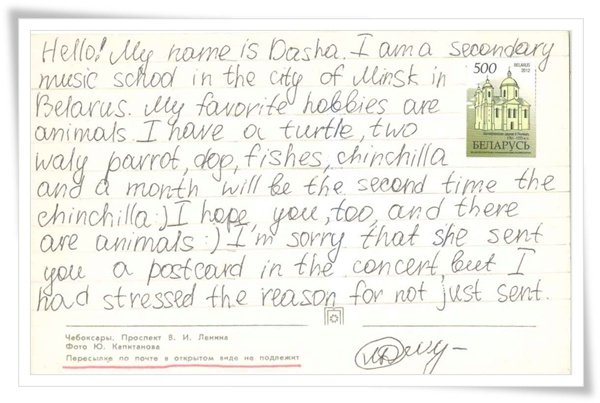 Hello! My name is Dasha. I am a secondary
music school in the city of Minsk in
Belarus. My favorite hobbies are
animals. I have a turtle, two
waly parrot, dog, fishes, chinchilla
and a month will be the second time the
chinchilla:) I hope, you, too, and there
are animals:) I'm sorry that she sent
you a postcard in the concert, but I
had stressed the reason for not just sent.
500
BELARUS
2012
БЕЛАРУСЬ
Чебоксары. Проспект В. И. Ленина
Фото Ю. Капитанова
Пересылке по почте в открытом виде не подлежит